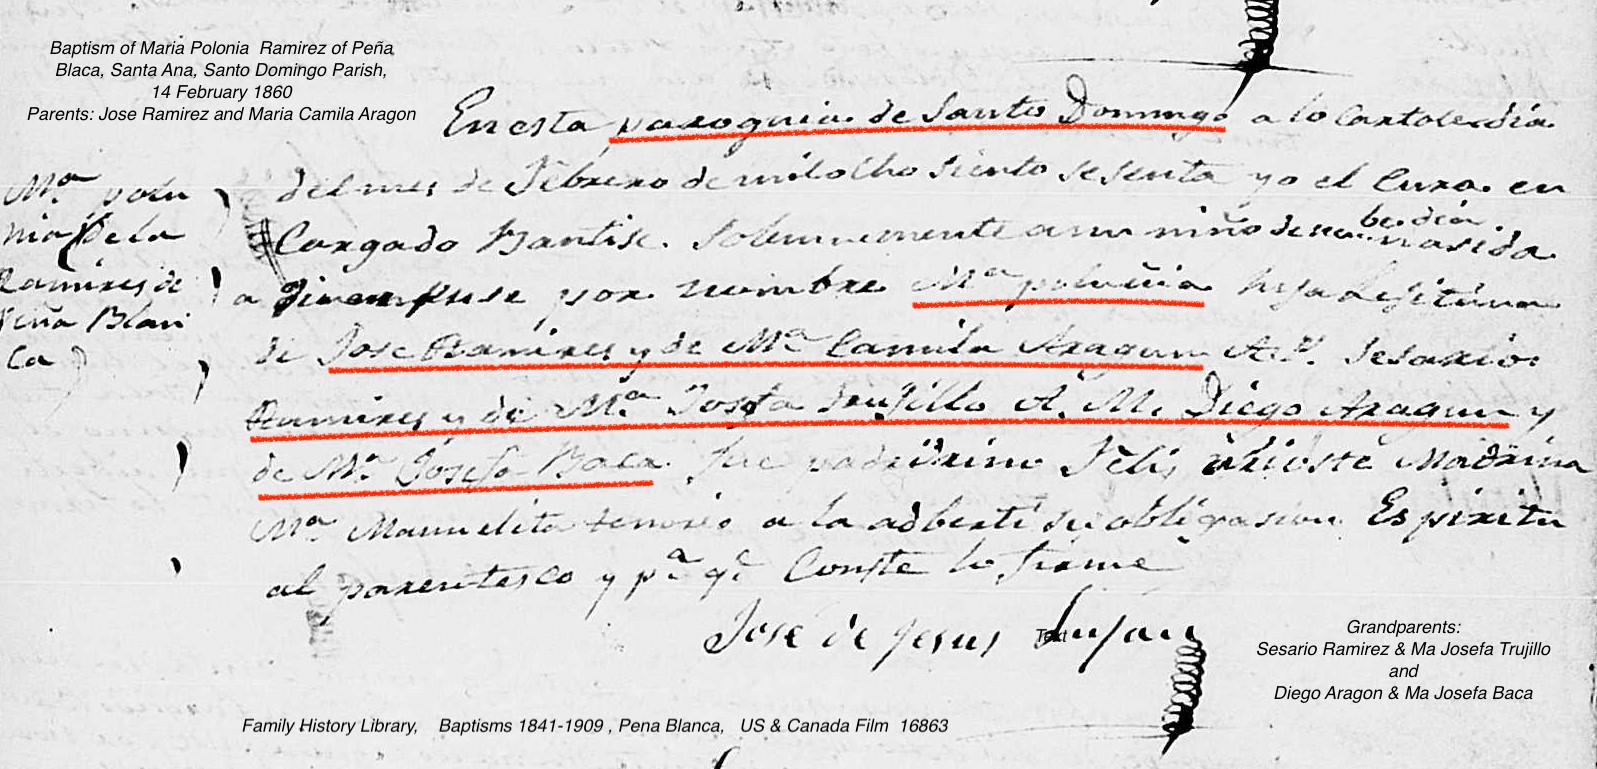 Baptism of Maria Polonia Ramirez of Peña
Blaca, Santa Ana, Santo Domingo Parish,
14 February 1860
Parents: Jose Ramirez and Maria Camila Aragon
En esta paroquia de Santo Domingo a lo Cartolse dia
del mes de Febrero de mil ocho siento sesenta yo el Cura en
Cargado Bautise Solemnemente a un niño de nasida
be dia
a puse por nombre Mª polonia hija lejitima
de Jose Ramires y de Mª Camila Aragon A. P. Sesario
Ramires y de Mª Josefa Trujillo A. M. Diego Aragon y
de Mª Josefa Baca fue padrino Felis Madrina
Mª Manuelita tenorio a la adberti su obligasion Espiritu
al parentesco y pª qe Conste lo firme
José de Jesus Lujan
Text
Mª polo
nia de la
Ramires de
Peña Blan
Ca
Grandparents:
Sesario Ramirez & Ma Josefa Trujillo
and
Diego Aragon & Ma Josefa Baca
Family History Library, Baptisms 1841-1909 , Pena Blanca, US & Canada Film 16863